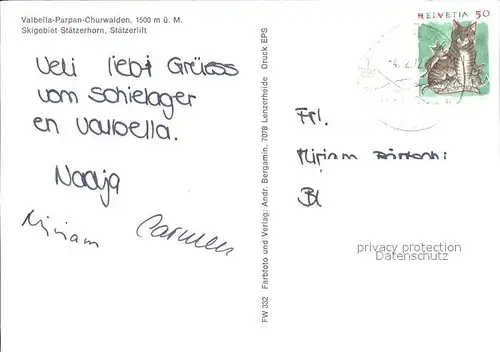 Valbella-Parpan-Churwalden, 1500 m ü. M.
Skigebiet Stätzerhorn, Stätzerlift
Ueli liebi Grüess
vom Schielager
en Valbella.
Nadja
Miriam Carmen
FW 332 Farbfoto und Verlag: Andr. Bergamin, 7078 Lenzerheide Druck EPS
HELVETIA 50
Frl.
Mirjam
privacy protection
Datenschutz